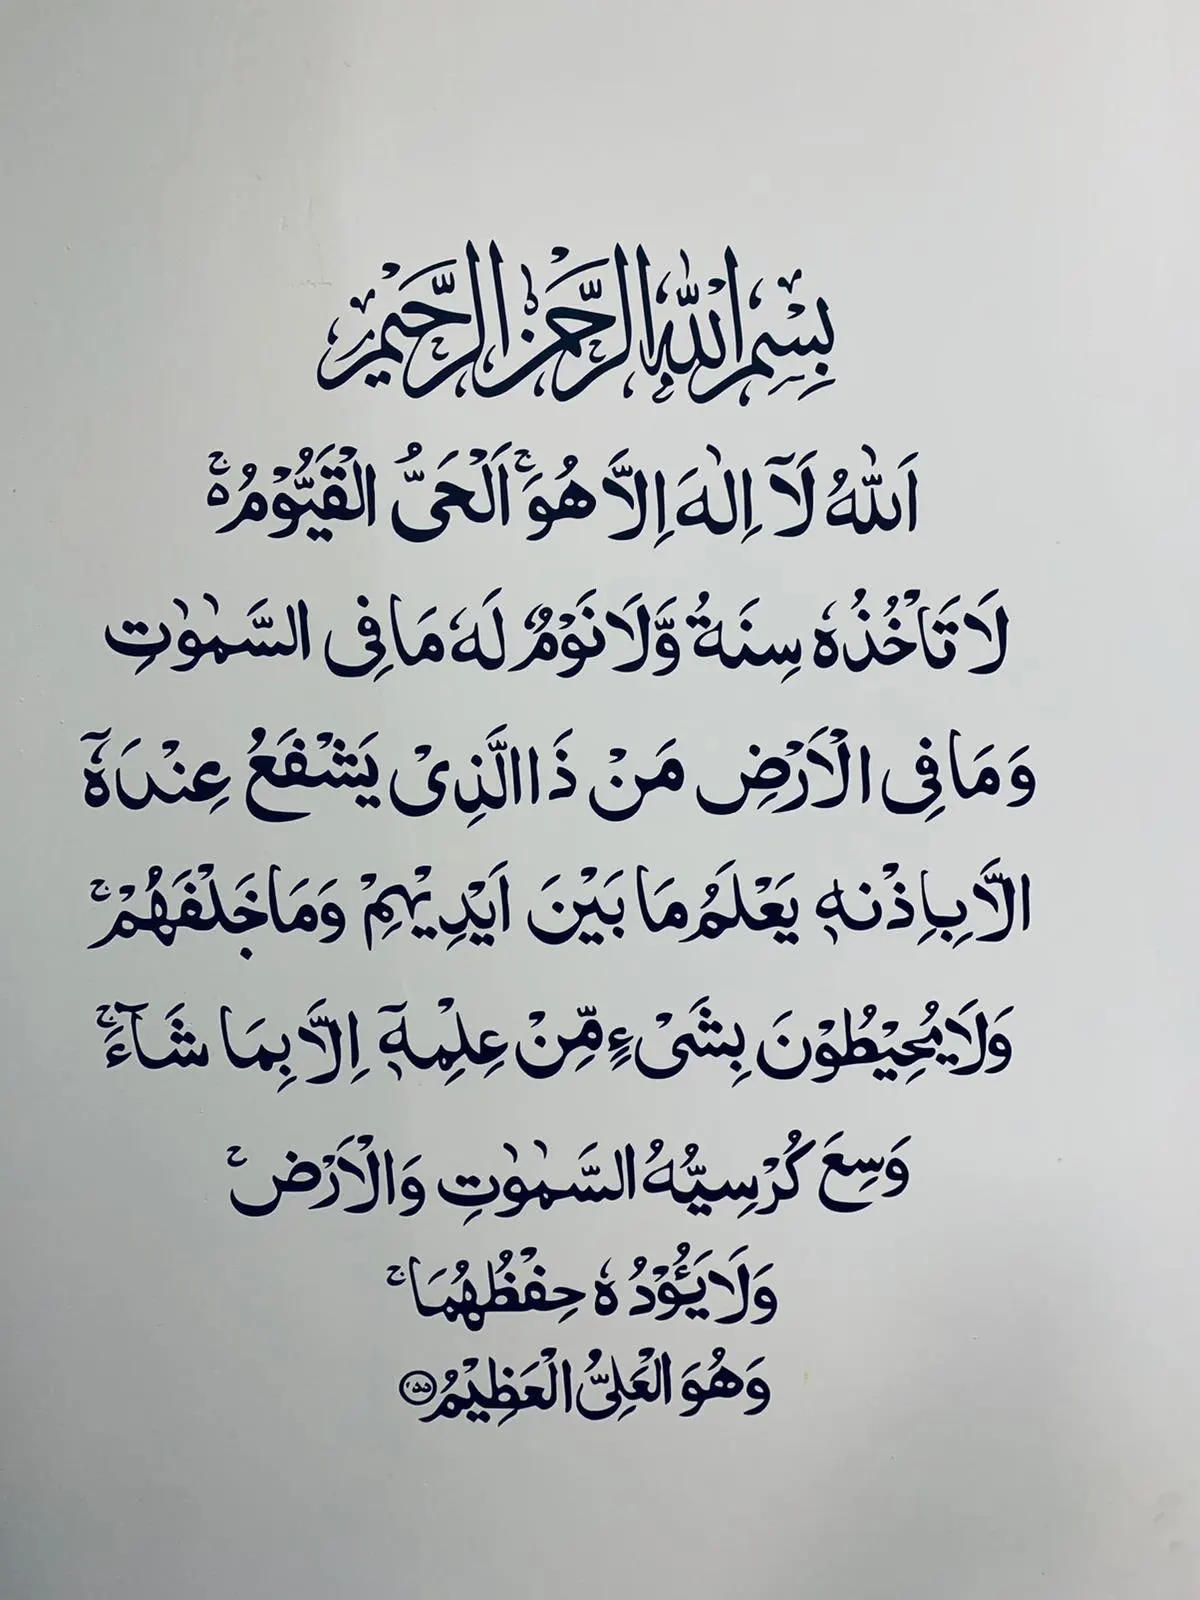 بِسْمِ اللّٰهِ الرَّحْمٰنِ الرَّحِيْمِ
اَللّٰهُ لَآ اِلٰهَ اِلَّا هُوَ ۚ اَلْحَیُّ الْقَيُّوْمُ ۚ
لَا تَاْخُذُهٗ سِنَةٌ وَّلَا نَوْمٌ لَهٗ مَا فِی السَّمٰوٰتِ
وَمَا فِی الْاَرْضِ مَنْ ذَا الَّذِیْ يَشْفَعُ عِنْدَهٗٓ
اِلَّا بِاِذْنِهٖ يَعْلَمُ مَا بَيْنَ اَيْدِيْهِمْ وَمَا خَلْفَهُمْ ۚ
وَلَا يُحِيْطُوْنَ بِشَیْءٍ مِّنْ عِلْمِهٖٓ اِلَّا بِمَا شَآءَ ۚ
وَسِعَ كُرْسِيُّهُ السَّمٰوٰتِ وَالْاَرْضَ ۚ
وَلَا يَـُٔوْدُهٗ حِفْظُهُمَا ۚ
وَهُوَ الْعَلِیُّ الْعَظِيْمُ ۲۵۵